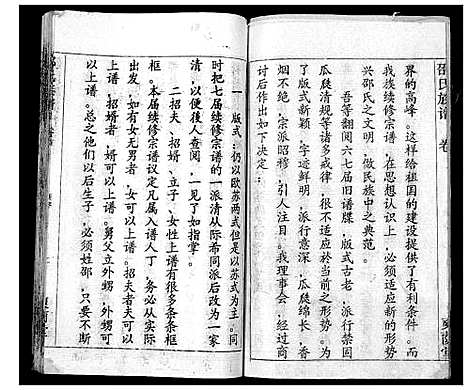 邵氏族谱 卷
界的高峰。这样给祖国的建设提供了有利条件。而
我族续修宗谱，在思想认识上，必须适应新的形势，
兴邵氏之文明，做民族中之典范。
吾等翻阅六七届旧谱牒，版式古老，派行禁固
瓜瓞清规等诸多戒律，很不适应於当前之形势。为
了版式新颖，字迹鲜明，派行意深，瓜瓞绵长，香
烟不绝，宗派昭穆，引人注目。我理事会，经过商
讨后作出如下决定：
一、版式：仍以欧苏两式但是以苏式为主。同
时把七届续修宗谱的一派清从际希同派后改为一家
清，以便後人查阅，一见了如指掌。
二、招夫、招婿、立子、女性上谱有很多条条框
框。本届续修宗谱议定凡属入谱人丁，务必从实际
出发，如有女无男者，女可以上谱。招夫者夫可以
上谱，招婿者，婿可以上谱。舅父立外甥，外甥可
以上谱。总之他们以后生子，必须姓邵，只要不断